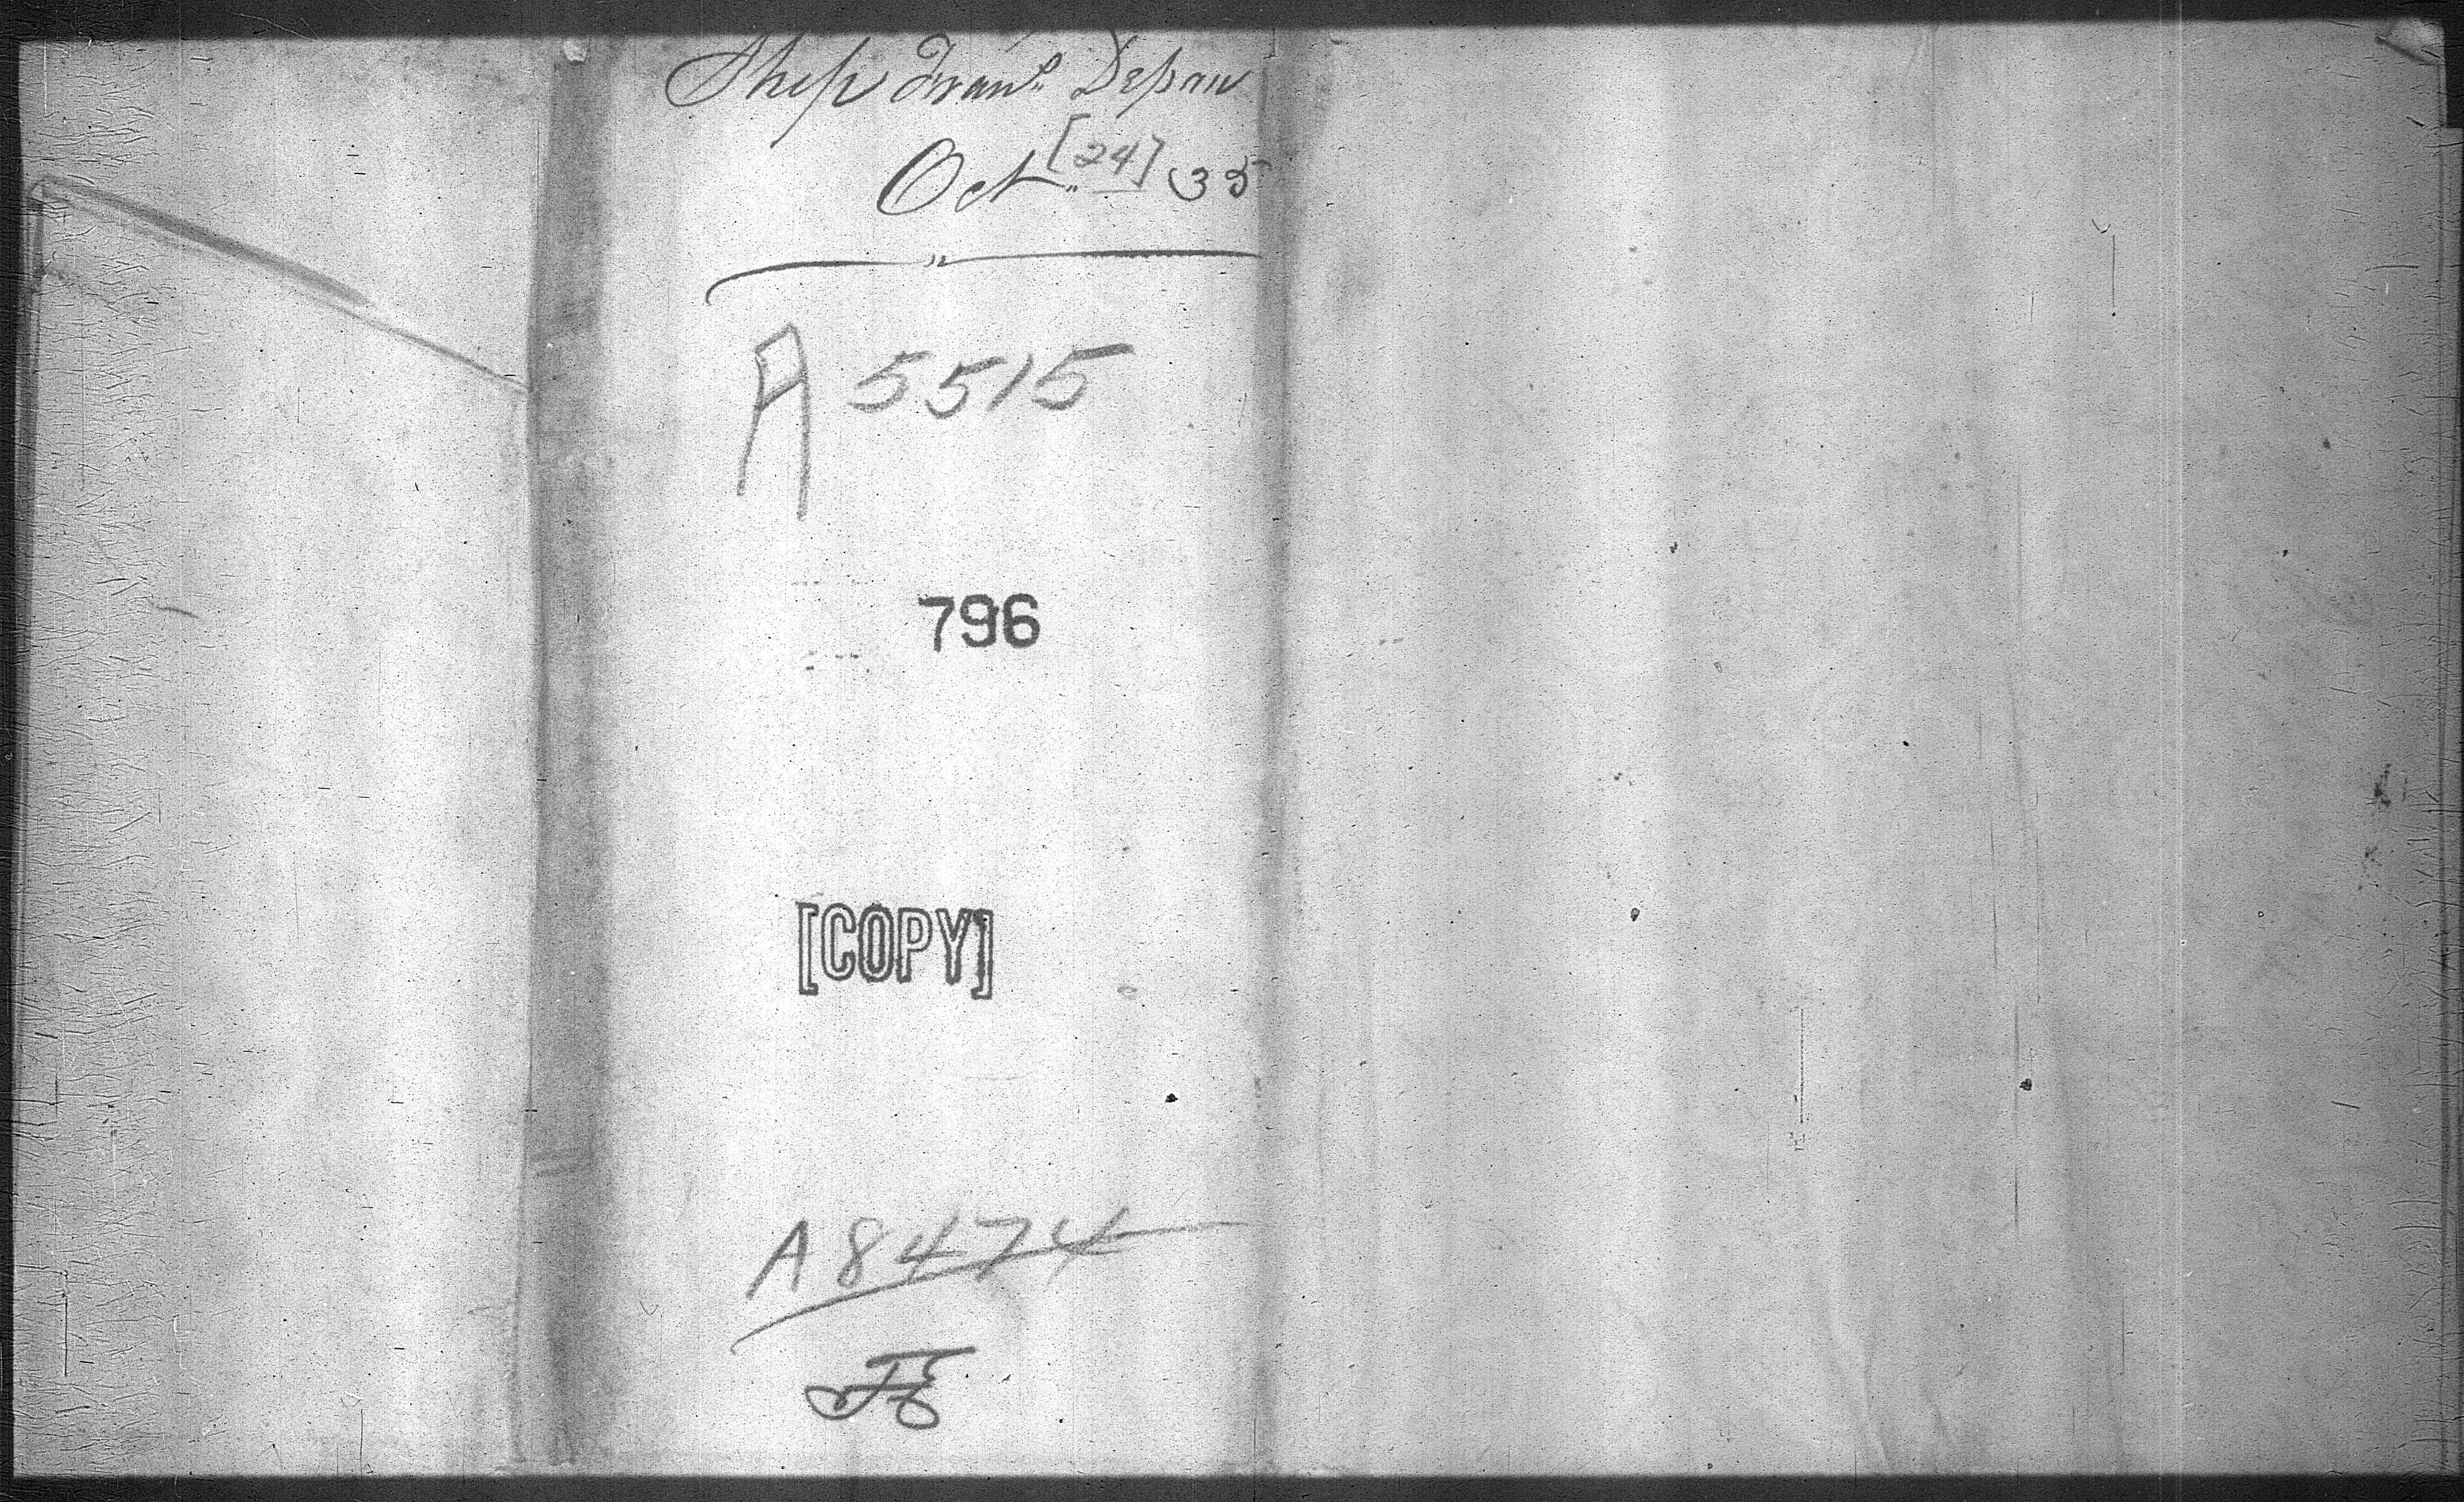 Ship Fran.s Depau
Oct. [24] 35
A 5515
796
[COPY]
A 8474